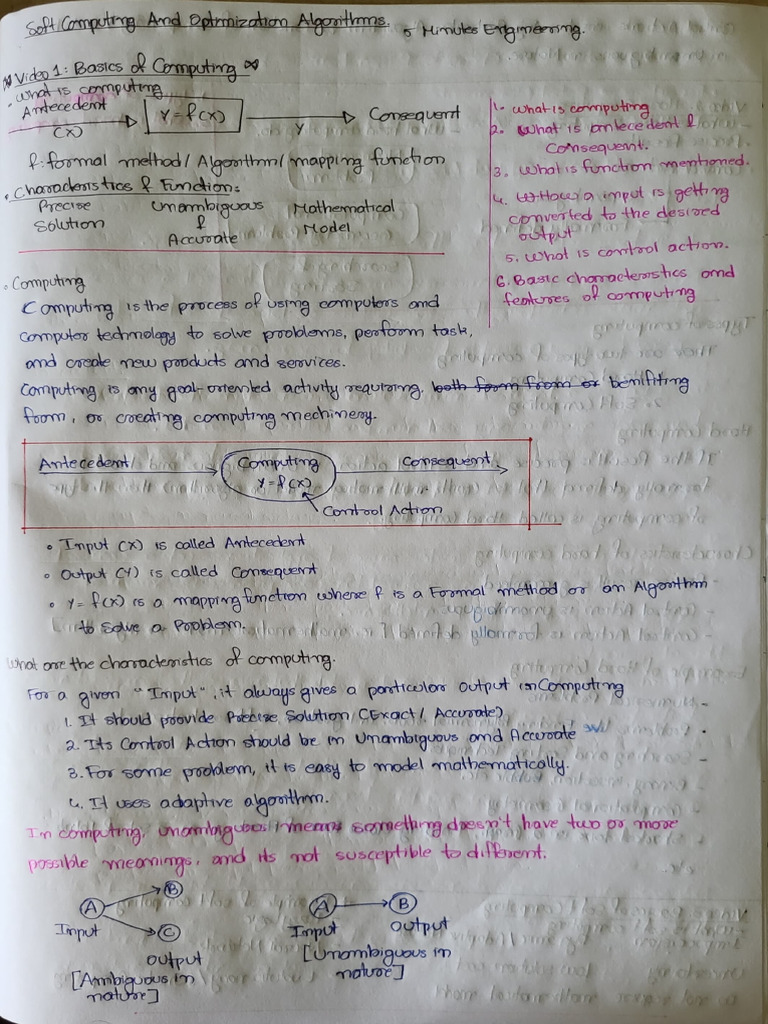 Soft Computing And Optimization Algorithms. 5 Minutes Engineering.
Video 1: Basics of Computing
• What is computing
Antecedent
(X)
Y = f(X)
Y
Consequent
f: formal method / Algorithm / mapping function
• Characteristics & Function:
Precise Unambiguous Mathematical
Solution & Model
Accurate
1. What is computing
2. What is antecedent &
Consequent.
3. What is function mentioned.
4. How a input is getting
converted to the desired
output
5. What is control action.
6. Basic characteristics and
features of computing
• Computing
Computing is the process of using computers and
computer technology to solve problems, perform task,
and create new products and services.
Computing is any goal-oriented activity requiring, both form from or benifiting
from, or creating computing mechinery.
Antecedent Computing Consequent
Y = f(X)
Control Action
• Input (X) is called Antecedent
• Output (Y) is called Consequent
• Y = f(X) is a mapping function where f is a Formal method or an Algorithm
to solve a Problem.
What are the characteristics of computing.
For a given "Input", it always gives a particular output in Computing
1. It should provide Precise Solution (Exact / Accurate)
2. Its Control Action should be in Unambiguous and Accurate
3. For some problem, it is easy to model mathematically.
4. It uses adaptive algorithm.
In computing, unambiguous means something doesn't have two or more
possible meanings, and its not susceptible to different.
A B
C
Input
output
[Ambiguous in
nature]
A B
Input output
[Unambiguous in
nature]